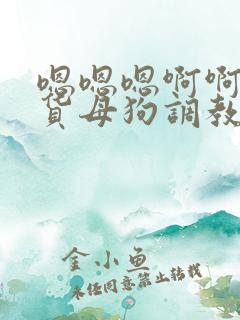 嗯嗯嗯啊啊
賞母狗調教
金小鱼
未经同意禁止转载